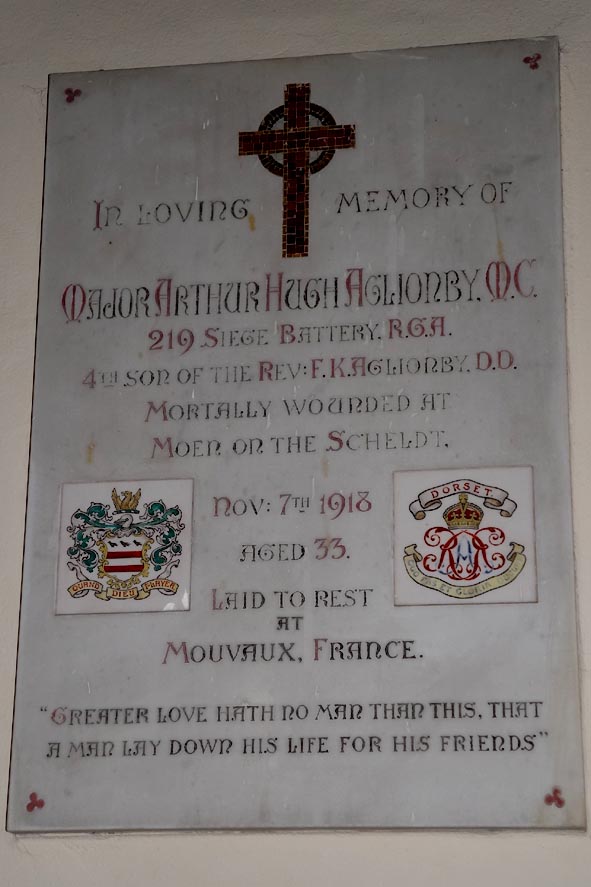 IN LOVING MEMORY OF
MAJOR ARTHUR HUGH AGLIONBY, M.C.
219 SIEGE BATTERY, R.G.A.
4TH SON OF THE REV: F.K. AGLIONBY, D.D.
MORTALLY WOUNDED AT
MOEN ON THE SCHELDT,
NOV: 7TH 1918
AGED 33.
DORSET
QUAND DIEU
LAID TO REST
AT
MOUVAUX, FRANCE.
"GREATER LOVE HATH NO MAN THAN THIS, THAT
A MAN LAY DOWN HIS LIFE FOR HIS FRIENDS"